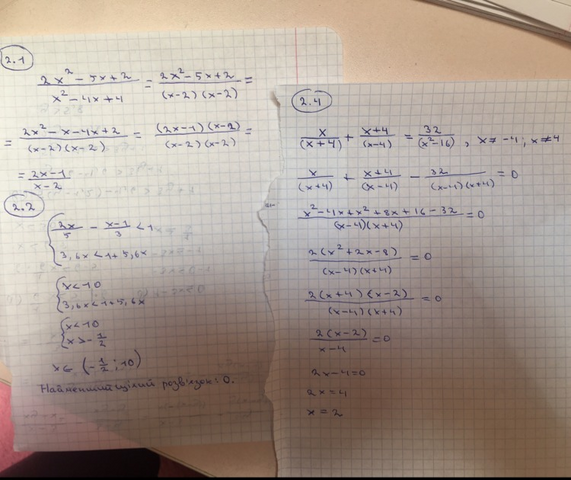 2.1
(2x² - 5x + 2)/(x² - 4x + 4) = (2x² - 5x + 2)/((x-2)(x-2)) =
= (2x² - x - 4x + 2)/((x-2)(x-2)) = ((2x-1)(x-2))/((x-2)(x-2)) =
= (2x-1)/(x-2)
2.2
{ 2x/5 - (x-1)/3 < 1
3,6x < 1 + 5,6x
{ x < 10
3,6x < 1 + 5,6x
{ x < 10
x > -1/2
x ∈ (-1/2; 10)
Найменший цілий розв'язок = 0.
2.4
x/(x+4) + (x+4)/(x-4) = 32/(x²-16), x ≠ -4; x ≠ 4
x/(x+4) + (x+4)/(x-4) - 32/((x-4)(x+4)) = 0
(x² - 4x + x² + 8x + 16 - 32)/((x-4)(x+4)) = 0
2(x² + 2x - 8)/((x-4)(x+4)) = 0
2(x+4)(x-2)/((x-4)(x+4)) = 0
2(x-2)/(x-4) = 0
2x - 4 = 0
2x = 4
x = 2